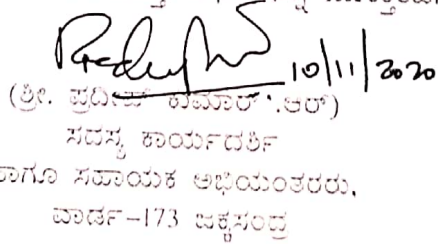 10/11/2020
(ಶ್ರೀ. ಪ್ರದೀಪ್ ಕುಮಾರ್ .ಆರ್)
ಸದಸ್ಯ ಕಾರ್ಯದರ್ಶಿ
ಹಾಗೂ ಸಹಾಯಕ ಅಭಿಯಂತರರು,
ವಾರ್ಡ್-173 ಜಕ್ಕಸಂದ್ರ